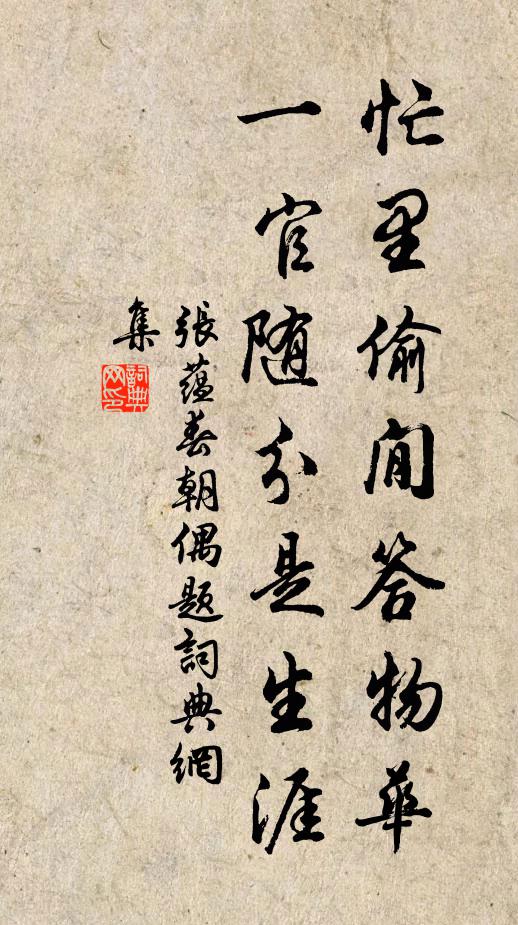 忙里偷闲答物華
一官随分是生涯
張蕴春朝偶题詞典網
集
詞典网印